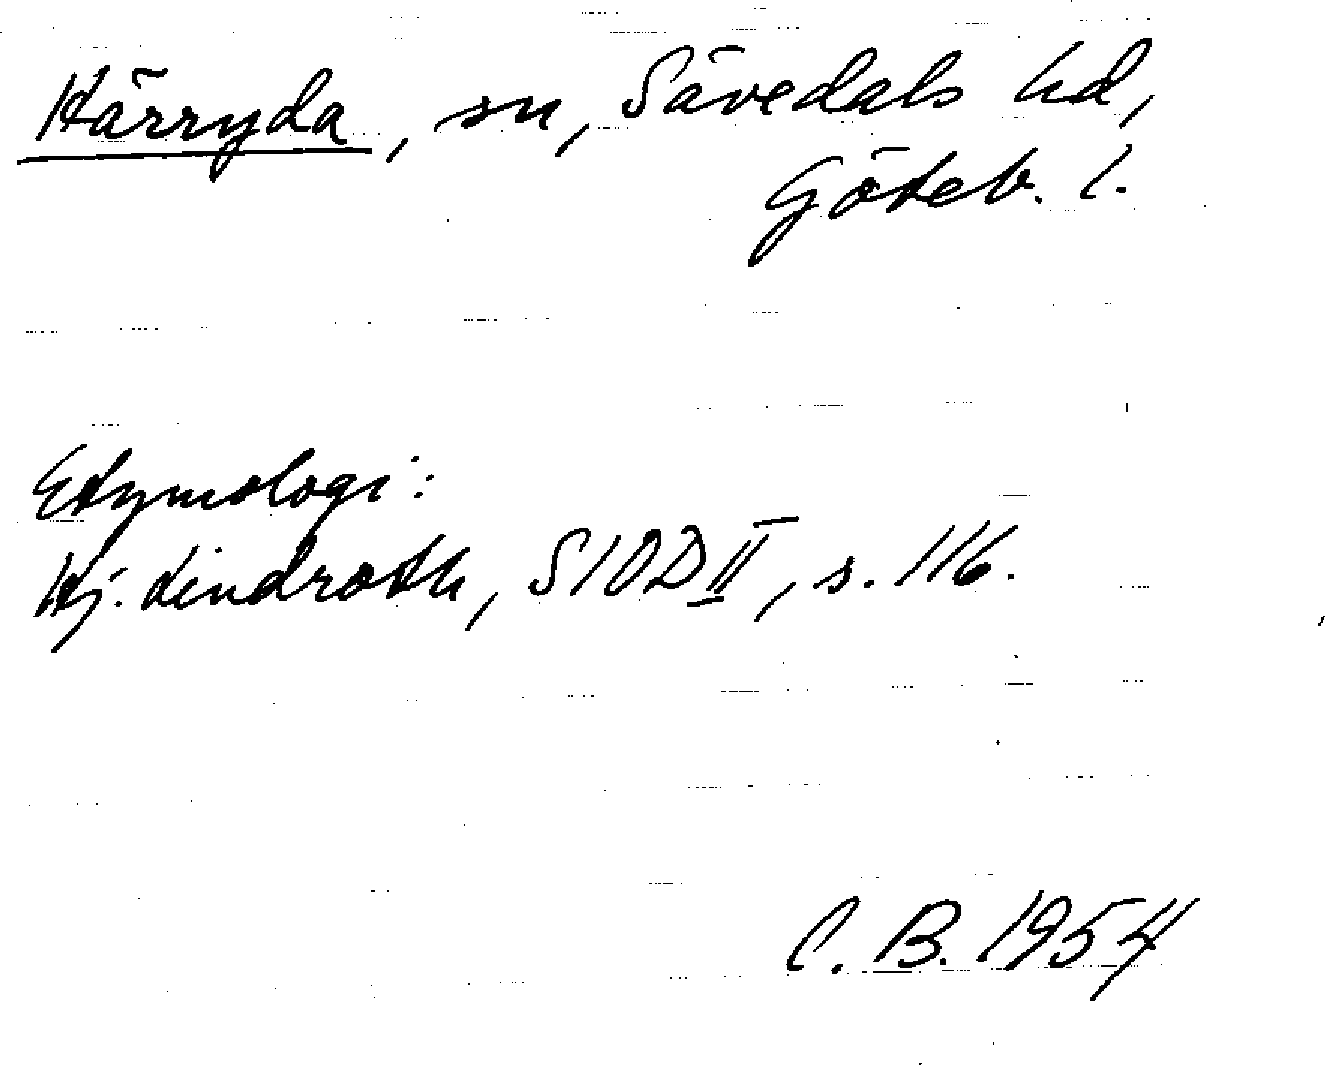 Härryda, sn, Sävedals hd,
Göteb. l.
Etymologi:
Hj. Lindroth, SIOD II, s. 116.
C. B. 1954